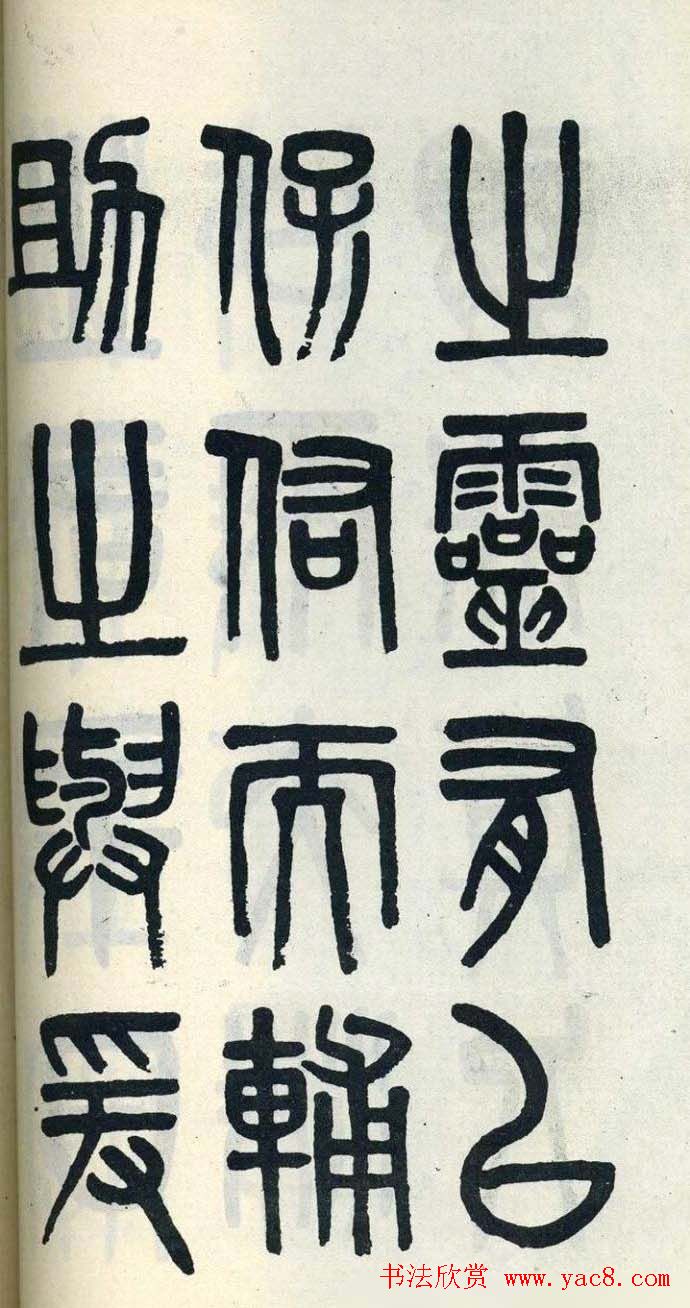 之靈有以
保佑而輔
助之與爰
书法欣赏 www.yac8.com